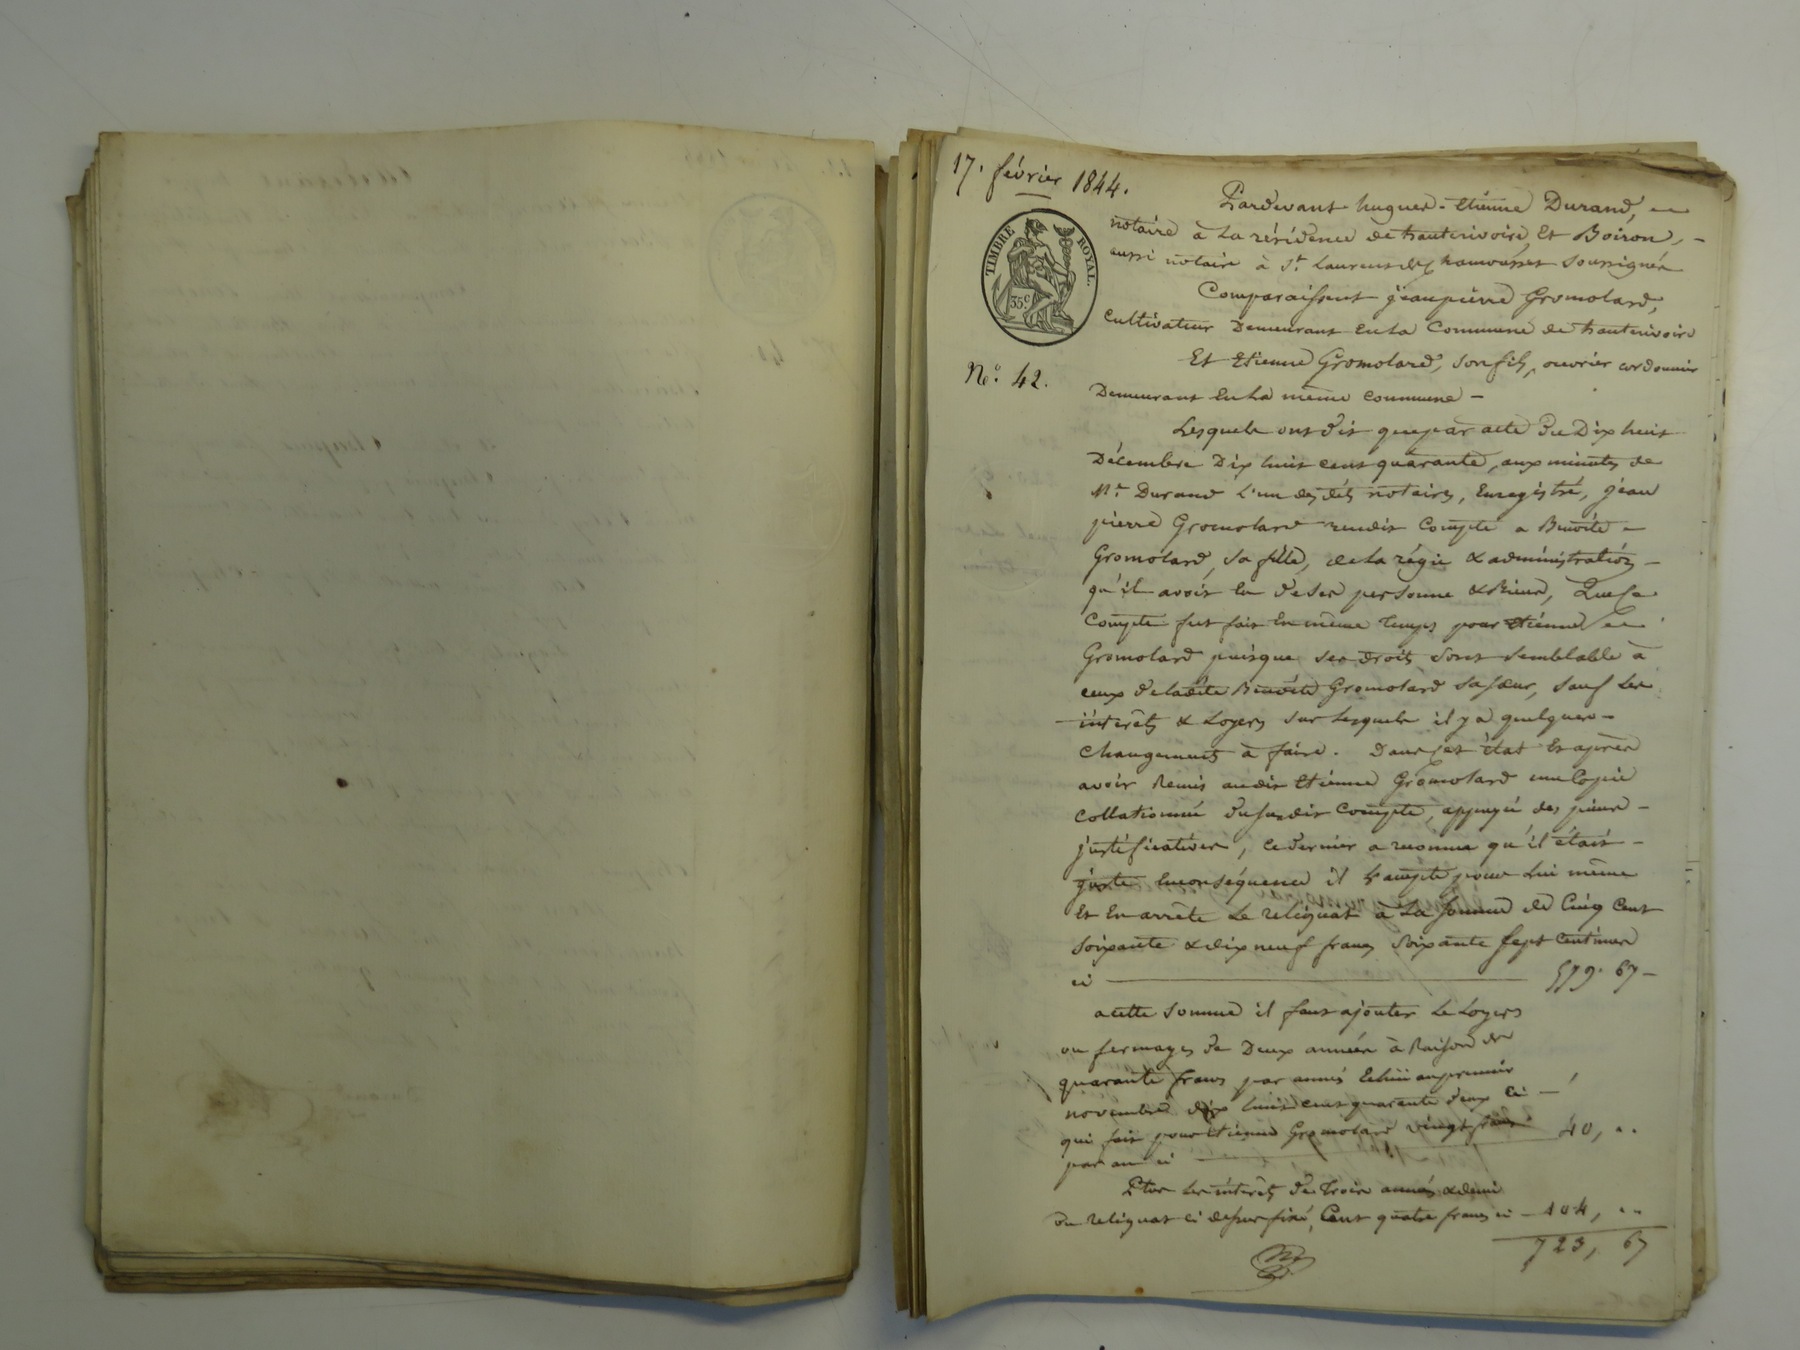 17. février 1844.
TIMBRE ROYAL.
35c
No. 42.
Pardevant hugues-Etienne Durand,
notaire à la résidence de hauterivoire, Et Boiron,
aussi notaire à St. Laurent de Chamousset soussignés
Comparaissent jeanpierre Gromolard,
cultivateur Demeurant En la Commune de hauterivoire
Et Etienne Gromolard, son fils, ouvrier cordonnier
Demeurant En la même commune -
Lesquels ont dit que par acte du Dix huit
Décembre Dix huit cent quarante, aux minutes de
Me. Durand l'un des dits notaires, Enregistré, jean
pierre Gromolard rendit Compte a Benoite -
Gromolard, sa fille, de la régie & administration -
qu'il avoit Eu de ses personne & Biens, Que ce
Compte fut fait En même temps pour Etienne
Gromolard puisque ses droits sont semblable à
ceux de ladite Benoite Gromolard sa sœur, sauf les
intérêts & Loyers sur lesquels il y a quelques -
changements à faire. Dans cet état Et après
avoir Remis audit Etienne Gromolard une Copie
Collationnée du susdit Compte, appuyé des pièces -
justificatives, ce dernier a reconnu qu'il était -
juste En conséquence il l'accepte pour Lui même
Et En arrête Le reliquat à La somme de Cinq Cent
soixante & dix neuf francs soixante sept Centimes
ci 579. 67 -
a cette somme il faut ajouter Le Loyers
ou fermages de Deux années à Raison de
quarante francs par année Echue au premier
novembre dix huit cent quarante deux ci -
qui fait pour Etienne Gromolard vingt francs
par an ci 40, ..
Plus les intérêts de trois années & demi
du reliquat ci dessus fixé, Cent quatre francs ci - 104, ..
723, 67